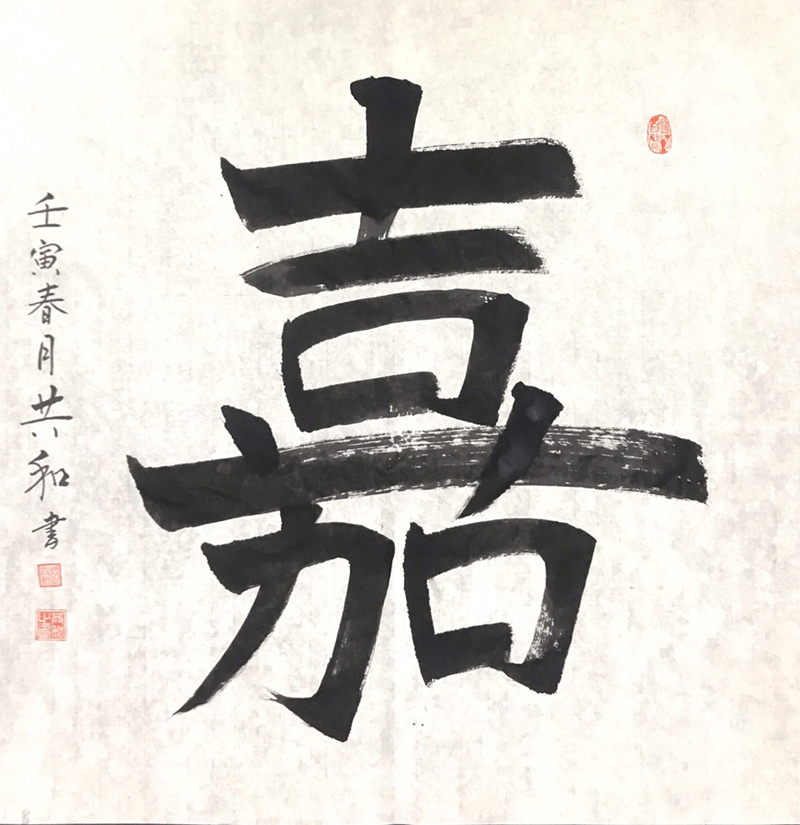 嘉
壬寅春月共和書